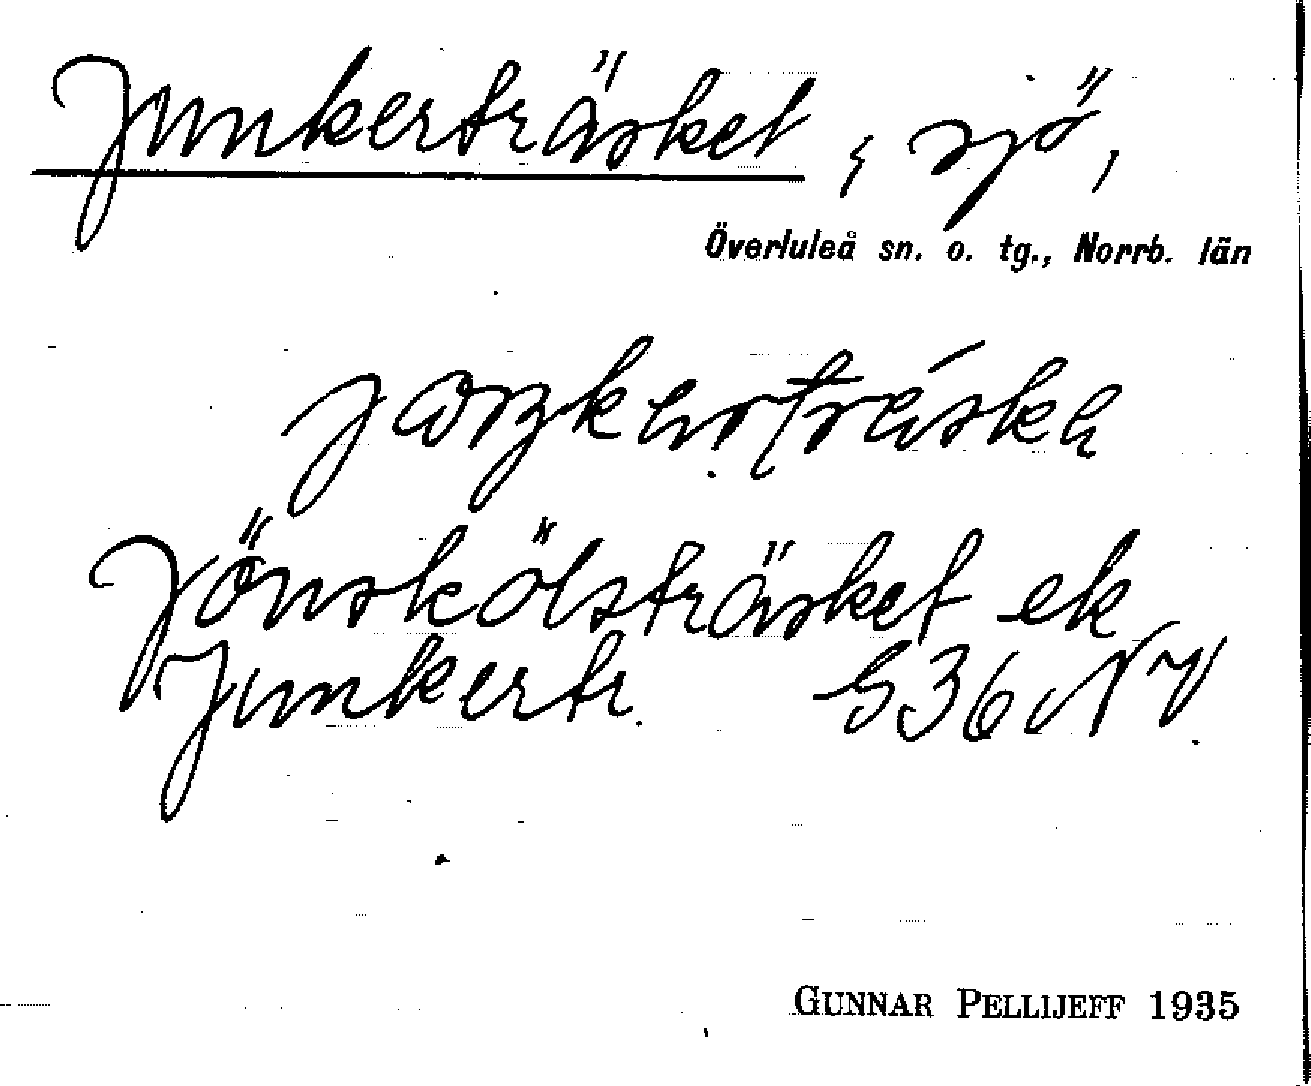 Junkerträsket, sjö,
Överluleå sn. o. tg., Norrb. län
Jönskölsträsket ek
Junkertr. G36 NV
GUNNAR PELLIJEFF 1935